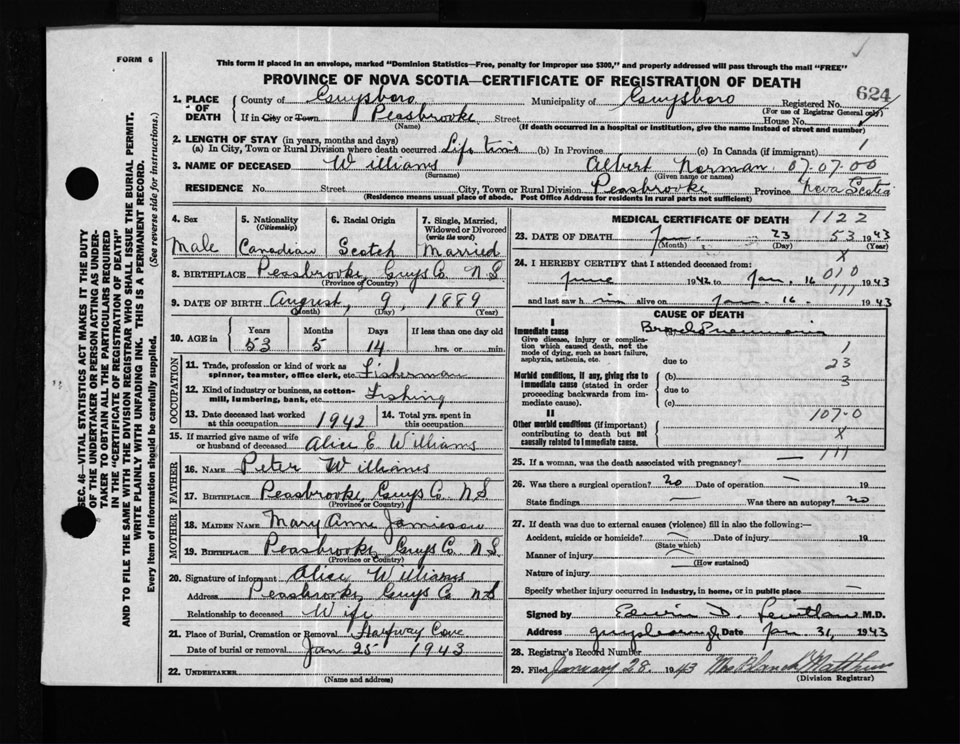 FORM 6
This form if placed in an envelope, marked "Dominion Statistics—Free, penalty for improper use $300," and properly addressed will pass through the mail "FREE"
PROVINCE OF NOVA SCOTIA—CERTIFICATE OF REGISTRATION OF DEATH
624
1. PLACE OF DEATH County of Guysboro Municipality of Guysboro Registered No.
(For use of Registrar General only)
If in City or Town Peasbrooke Street House No.
(Name) (If death occurred in a hospital or institution, give the name instead of street and number)
2. LENGTH OF STAY (in years, months and days)
(a) In City, Town or Rural Division where death occurred Life time (b) In Province (c) In Canada (if immigrant) 1
3. NAME OF DECEASED Williams Albert Norman 07.07.00
(Surname) (Given name or names)
RESIDENCE No. Street City, Town or Rural Division Peasbrooke Province Nova Scotia
(Residence means usual place of abode. Post Office Address for residents in rural parts not sufficient)
4. Sex Male
5. Nationality (Citizenship) Canadian
6. Racial Origin Scotch
7. Single, Married, Widowed or Divorced (write the word) Married
8. BIRTHPLACE Peasbrooke, Guys Co. N.S.
(Province or Country)
9. DATE OF BIRTH August, 9, 1889
(Month) (Day) (Year)
10. AGE in Years Months Days If less than one day old
53 5 14 hrs. or min.
OCCUPATION
11. Trade, profession or kind of work as spinner, teamster, office clerk, etc. Fisherman
12. Kind of industry or business, as cotton-mill, lumbering, bank, etc. Fishing
13. Date deceased last worked at this occupation 1942
14. Total yrs. spent in this occupation
15. If married give name of wife or husband of deceased Alice E. Williams
FATHER
16. NAME Peter Williams
17. BIRTHPLACE Peasbrooke, Guys Co. N S
(Province or Country)
MOTHER
18. MAIDEN NAME Mary Anne Jamieson
19. BIRTHPLACE Peasbrooke, Guys Co. N.S.
(Province or Country)
20. Signature of informant Alice Williams
Address Peasbrooke, Guys Co N S
Relationship to deceased Wife
21. Place of Burial, Cremation or Removal Halfway Cove
Date of burial or removal Jan 25 1943
22. UNDERTAKER
(Name and address)
MEDICAL CERTIFICATE OF DEATH 1122
23. DATE OF DEATH Jan. 23 53 1943
(Month) (Day) (Year)
X
24. I HEREBY CERTIFY that I attended deceased from:
010
June 1942 to Jan. 16 1943
111
and last saw him alive on Jan. 16. 1943
CAUSE OF DEATH
I
Immediate cause
Give disease, injury or complication which caused death, not the mode of dying, such as heart failure, asphyxia, asthenia, etc.
(a) Broncho Pneumonia
1
due to 23
Morbid conditions, if any, giving rise to immediate cause (stated in order proceeding backwards from immediate cause).
(b) 3
due to
(c)
107-0
II
Other morbid conditions (if important) contributing to death but not causally related to immediate cause.
X
111
25. If a woman, was the death associated with pregnancy? —
26. Was there a surgical operation? no Date of operation — 19
State findings — Was there an autopsy? no
27. If death was due to external causes (violence) fill in also the following:—
Accident, suicide or homicide? Date of injury 19
(State which)
Manner of injury
(How sustained)
Nature of injury
Specify whether injury occurred in industry, in home, or in public place —
Signed by Edwin D. M.D.
Address Guysborough Date Jan 31, 1943
28. Registrar's Record Number
29. Filed January 28. 1943 Mrs. Blanch Matthews
(Division Registrar)
SEC. 46—VITAL STATISTICS ACT MAKES IT THE DUTY
OF THE UNDERTAKER OR PERSON ACTING AS UNDER-
TAKER TO OBTAIN ALL THE PARTICULARS REQUIRED
IN THE "CERTIFICATE OF REGISTRATION OF DEATH"
AND TO FILE THE SAME WITH THE DIVISION REGISTRAR WHO SHALL ISSUE THE BURIAL PERMIT.
WRITE PLAINLY WITH UNFADING INK. THIS IS A PERMANENT RECORD.
Every item of information should be carefully supplied. (See reverse side for instructions.)